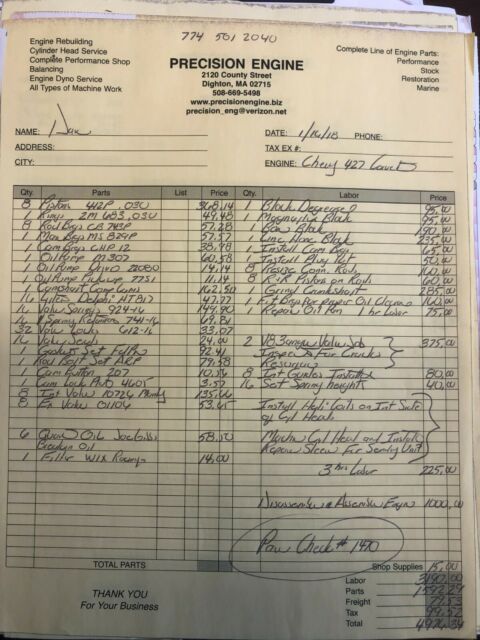 774 501 2040
Engine Rebuilding
Cylinder Head Service
Complete Performance Shop
Balancing
Engine Dyno Service
All Types of Machine Work
PRECISION ENGINE
2120 County Street
Dighton, MA 02715
508-669-5498
www.precisionengine.biz
precision_eng@verizon.net
Complete Line of Engine Parts:
Performance
Stock
Restoration
Marine
NAME:
DATE: 1/16/18 PHONE:
ADDRESS:
TAX EX #:
CITY:
ENGINE: Chevy 427
Qty. Parts List Price Qty. Labor Price
8 Pistons 442P .030 368.14 1 Block 95.00
1 Rings 2M 683 .030 49.48 1 Magnaflux Block 95.00
8 Rod Brgs CB 743P 57.28 1 Bore Block 190.00
1 Main Brgs MS 829P 57.57 1 Line Hone Block 235.00
1 Cam Brgs CHP 12 38.98 1 Install Cam Brgs
1 Oil Pump M 307 60.58 1 Install Plug Kit 50.00
1 Oil Pump Drive 14.14 8 Conn. Rods 160.00
1 Oil Pump Pickup 7751 11.14 8 Pistons on Rods 60.00
1 Camshaft 162.50 1 Grind Crankshaft 285.00
16 Lifters Delphi 47.77 1 Fit Brgs For Proper Oil 160.00
16 Valve Springs 924-16 149.90 1 Repair Oil Pan 1 hr Labor 75.00
16 Spring Retainers 741-16
32 Valve Locks 612-16 33.07
16 Valve Seals 24.00 2 V8 3 angle Valve Job 375.00
1 Gasket Set FelPro 92.41 Inspect For Cracks
1 Rod Bolt Set ARP 79.58 Resurfacing
1 Cam Button 207 10.56 8 Int Guides Installed 80.00
1 Cam Lock Plate 4605 3.57 16 Set Spring heights 40.00
8 Int Valve 10726 135.66
8 Ex Valve 53.65 Install Heli Coils on Int Side
of Cyl Heads
6 Quart Oil Joe Gibbs 58.50 Machine Cyl Head and Install
Breakin Oil Repair Sleeve For Sending Unit
1 Filter WIX Racing 14.00
3 hrs Labor 225.00
Disassemble & Assemble Engine 1000.00
Check # 1470
TOTAL PARTS
Shop Supplies 15.00
THANK YOU
For Your Business
Labor
Parts 1592.29
Freight 77.53
Tax 99.52
Total 4976.34